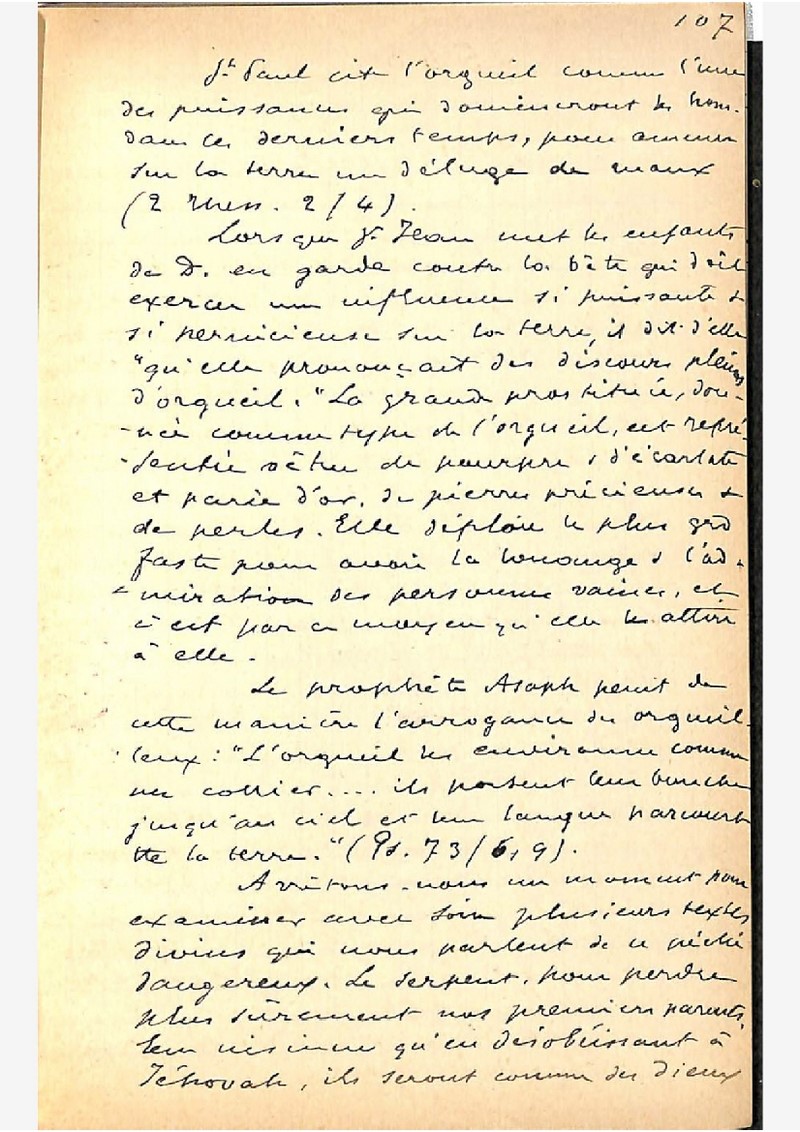 107
St Paul cite l'orgueil comme l'une
des puissances qui domineront les hom.
dans les derniers temps, pour amener
sur la terre un déluge de maux
(2 Thess. 2/4).
Lorsque St Jean met les enfants
de D. en garde contre la bête qui doit
exercer une influence si puissante &
si pernicieuse sur la terre, il dit d'elle
"qu'elle prononçait des discours pleins
d'orgueil." La grande prostituée, don-
-née comme type de l'orgueil, est repré-
-sentée vêtue de pourpre & d'écarlate
et parée d'or, de pierres précieuses &
de perles. Elle déploie le plus grd
faste pour avoir la louange & l'ad-
-miration des personnes vaines, et
c'est par ce moyen qu'elle les attire
à elle.
Le prophète Asaph peint de
cette manière l'arrogance des orgueil-
leux : "L'orgueil les environne comme
un collier.... ils portent leur bouche
jusqu'au ciel et leur langue parcourt
tte la terre." (Ps. 73/6,9).
Arrêtons-nous un moment pour
examiner avec soin plusieurs textes
divins qui nous parlent de ce péché
dangereux. Le serpent, pour perdre
plus sûrement nos premiers parents,
leur insinue qu'en désobéissant à
Jéhovah, ils seront comme des dieux